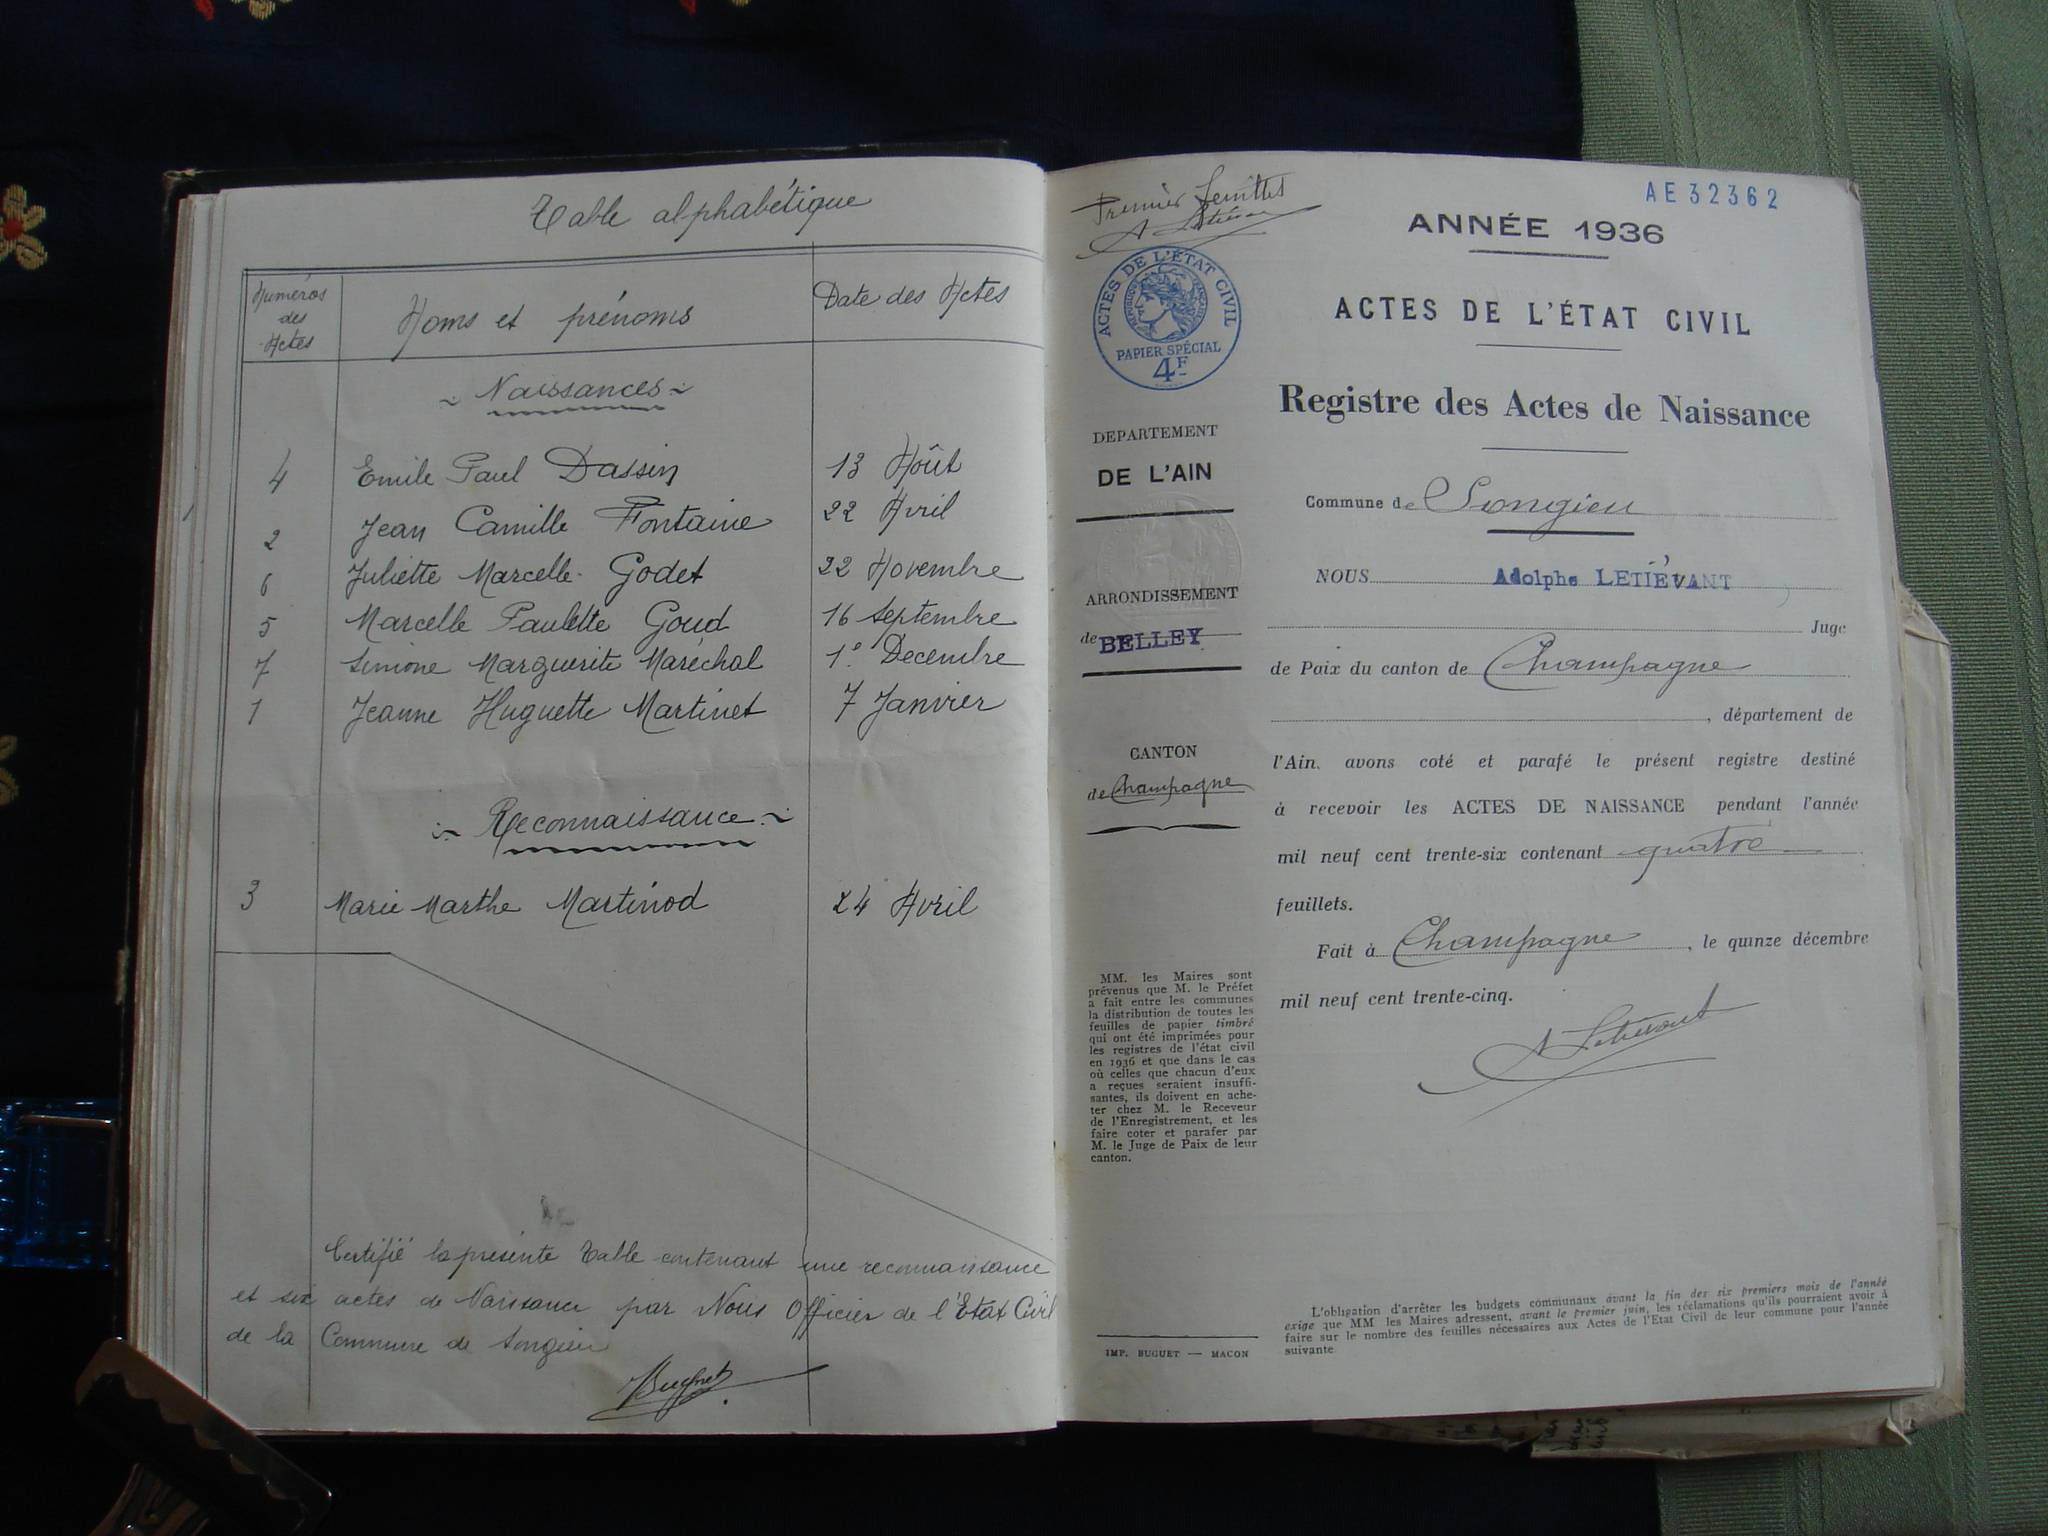 Table alphabétique
Numéros des Actes
Noms et prénoms
Date des Actes
Naissances
4 Emile Paul Dassin 13 Août
2 Jean Camille Fontaine 22 Avril
6 Juliette Marcelle Godet 22 Novembre
5 Marcelle Paulette Goud 16 Septembre
7 Simone Marguerite Maréchal 1º Decembre
1 Jeanne Huguette Martinet 7 Janvier
Reconnaissance
3 Marie Marthe Martinod 24 Avril
Certifié la présente Table contenant une reconnaissance
et six actes de Naissance par Nous Officier de l'Etat Civil
de la Commune de Songieu
Premier feuillet
A Letiévant
ACTES DE L'ÉTAT CIVIL
PAPIER SPÉCIAL
4F
DEPARTEMENT
DE L'AIN
ARRONDISSEMENT
de BELLEY
CANTON
de Champagne
MM. les Maires sont
prévenus que M. le Préfet
a fait entre les communes
la distribution de toutes les
feuilles de papier timbré
qui ont été imprimées pour
les registres de l'état civil
en 1936 et que dans le cas
où celles que chacun d'eux
a reçues seraient insuffi-
santes, ils doivent en ache-
ter chez M. le Receveur
de l'Enregistrement, et les
faire coter et parafer par
M. le Juge de Paix de leur
canton.
IMP. BUGUET — MACON
AE32362
ANNÉE 1936
ACTES DE L'ÉTAT CIVIL
Registre des Actes de Naissance
Commune de Songieu
NOUS Adolphe LETIÉVANT
Juge
de Paix du canton de Champagne
, département de
l'Ain, avons coté et parafé le présent registre destiné
à recevoir les ACTES DE NAISSANCE pendant l'année
mil neuf cent trente-six contenant quatre
feuillets.
Fait à Champagne, le quinze décembre
mil neuf cent trente-cinq.
A Letiévant
L'obligation d'arrêter les budgets communaux avant la fin des six premiers mois de l'année
exige que MM les Maires adressent, avant le premier juin, les réclamations qu'ils pourraient avoir à
faire sur le nombre des feuilles nécessaires aux Actes de l'Etat Civil de leur commune pour l'année
suivante